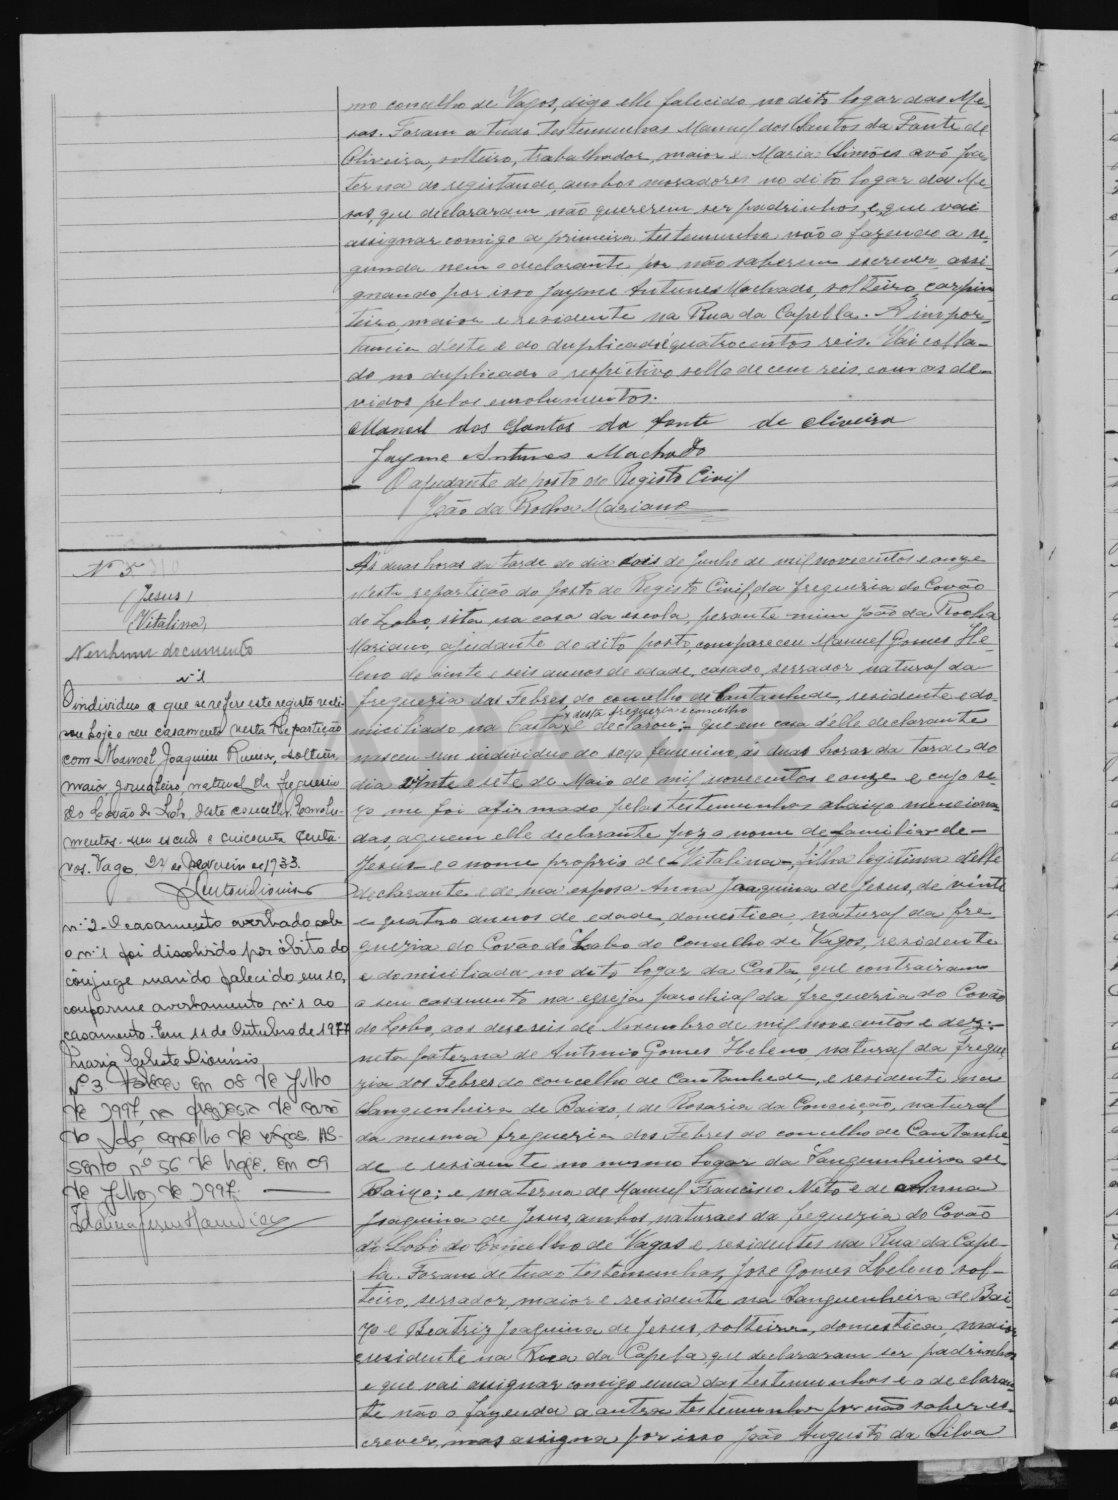 no concelho de Vagos, digo elle falecido no dito logar das Me-
sas. Foram a tudo testemunhas Manuel dos Santos da Fonte de
Oliveira, solteiro, trabalhador, maior e Maria Simões avó pa-
terna do registando, ambos moradores no dito logar das Me-
sas, que declararam não quererem ser padrinhos, e que vai
assignar comigo a primeira testemunha não o fazendo a se-
gunda nem o declarante por não saberem escrever, assi-
gnando por isso Jayme Antunes Machado, solteiro, carpin-
teiro, maior e residente na Rua da Capella. A impor-
tancia d'este e do duplicado é quatrocentos reis. Vai colla-
do no duplicado o respectivo sello de cem reis com as de-
vidos pelos emolumentos.
Manuel dos Santos da fonte de oliveira
Jayme Antunes Machado
O ajudante do posto de Registo Civil
João da Rocha Mariano
Nº 5
(Jesus)
(Vitalina)
Nenhum documento
nº 1
O individuo a que se refere este registo reali-
sou hoje o seu casamento nesta Repartição
com Manoel Joaquim, solteiro,
maior, jornaleiro, natural da freguesia
do Covão do Lobo, deste concelho. Emolu-
mentos um escudo e cincoenta centa-
vos. Vagos 24 de 1933.
nº 2 - O casamento averbado sob
o nº 1 foi dissolvido por óbito do
cônjuge marido falecido em 10,
conforme averbamento nº 1 ao
casamento. Em 11 de Outubro de 1977
Maria Celeste Dionísio
Nº 3 Faleceu em 08 de Julho
de 1997, na freguesia de covão
do lobo, concelho de vagos. AS-
sento nº 56 de hoje. em 09
de Julho de 1997.
Ás duas horas da tarde do dia dois de Junho de mil novecentos e onze
n'esta repartição do posto do Registo Civil, da freguezia do Covão
do Lobo, sita na casa da escola, perante mim João da Rocha
Mariano, ajudante do dito posto, compareceu Manuel Gomes He-
leno de vinte e seis annos de edade, casado, serrador natural da
freguezia das Febres, do concelho de Cantanhede, residente e do-
desta freguezia e concelho
miciliado na Costa, e declarou: - que em casa d'elle declarante
nasceu um individuo do sexo femenino, ás duas horas da tarde do
dia vinte e sete de Maio de mil novecentos e onze e cujo se-
xo me foi afirmado pelas testemunhas abaixo menciona-
das, a quem elle declarante poz o nome de familia de -
Jesus - e o nome proprio de - Vitalina -, filha legitima d'elle
declarante e de sua esposa Anna Joaquina de Jesus, de vinte
e quatro annos de edade, domestica, natural da fre-
guezia do Covão do Lobo do concelho de Vagos, residente
e domiciliada no dito logar da Costa, que contrairam
o seu casamento na egreja parochial da freguezia do Covão
do Lobo, aos deseseis de Novembro de mil novecentos e dez: -
neta paterna de Antonio Gomes Heleno, natural da fregue-
zia das Febres do concelho de Cantanhede, e residente nas
Sanguenheira de Baixo, e de Rosaria da Conceição, natural
da mesma freguezia dos Febres do concelho de Cantanhe-
de e residente no mesmo logar da Sanguenheira de
Baixo; e materna de Manuel Francisco Neto e de Anna
Joaquina de Jesus, ambos naturaes da freguezia do Covão
do Lobo do Concelho de Vagos e residentes na Rua da Cape-
la. Foram de tudo testemunhas, José Gomes Heleno sol-
teiro, serrador, maior e residente na Sanguenheira de Bai-
xo e Beatriz Joaquina de Jesus, solteira, domestica, maior
e residente na Rua da Capela que declararam ser padrinhos
e que vai assignar comigo uma das testemunhas e o declaran-
te não o fazendo a outra testemunha por não saber es-
crever, mas assigna por isso João Augusto da Silva